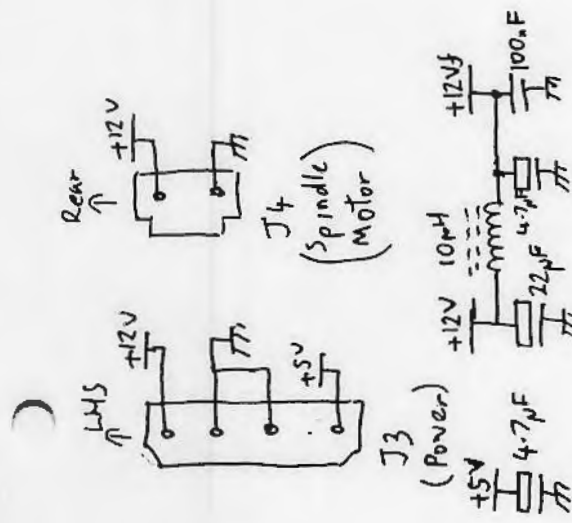 LHS
+12V
+5V
J3
(Power)
Rear
+12V
J4
(Spindle
Motor)
+5V
4.7µF
+12V
22µF
10µH
4.7µF
+12Vf
100nF